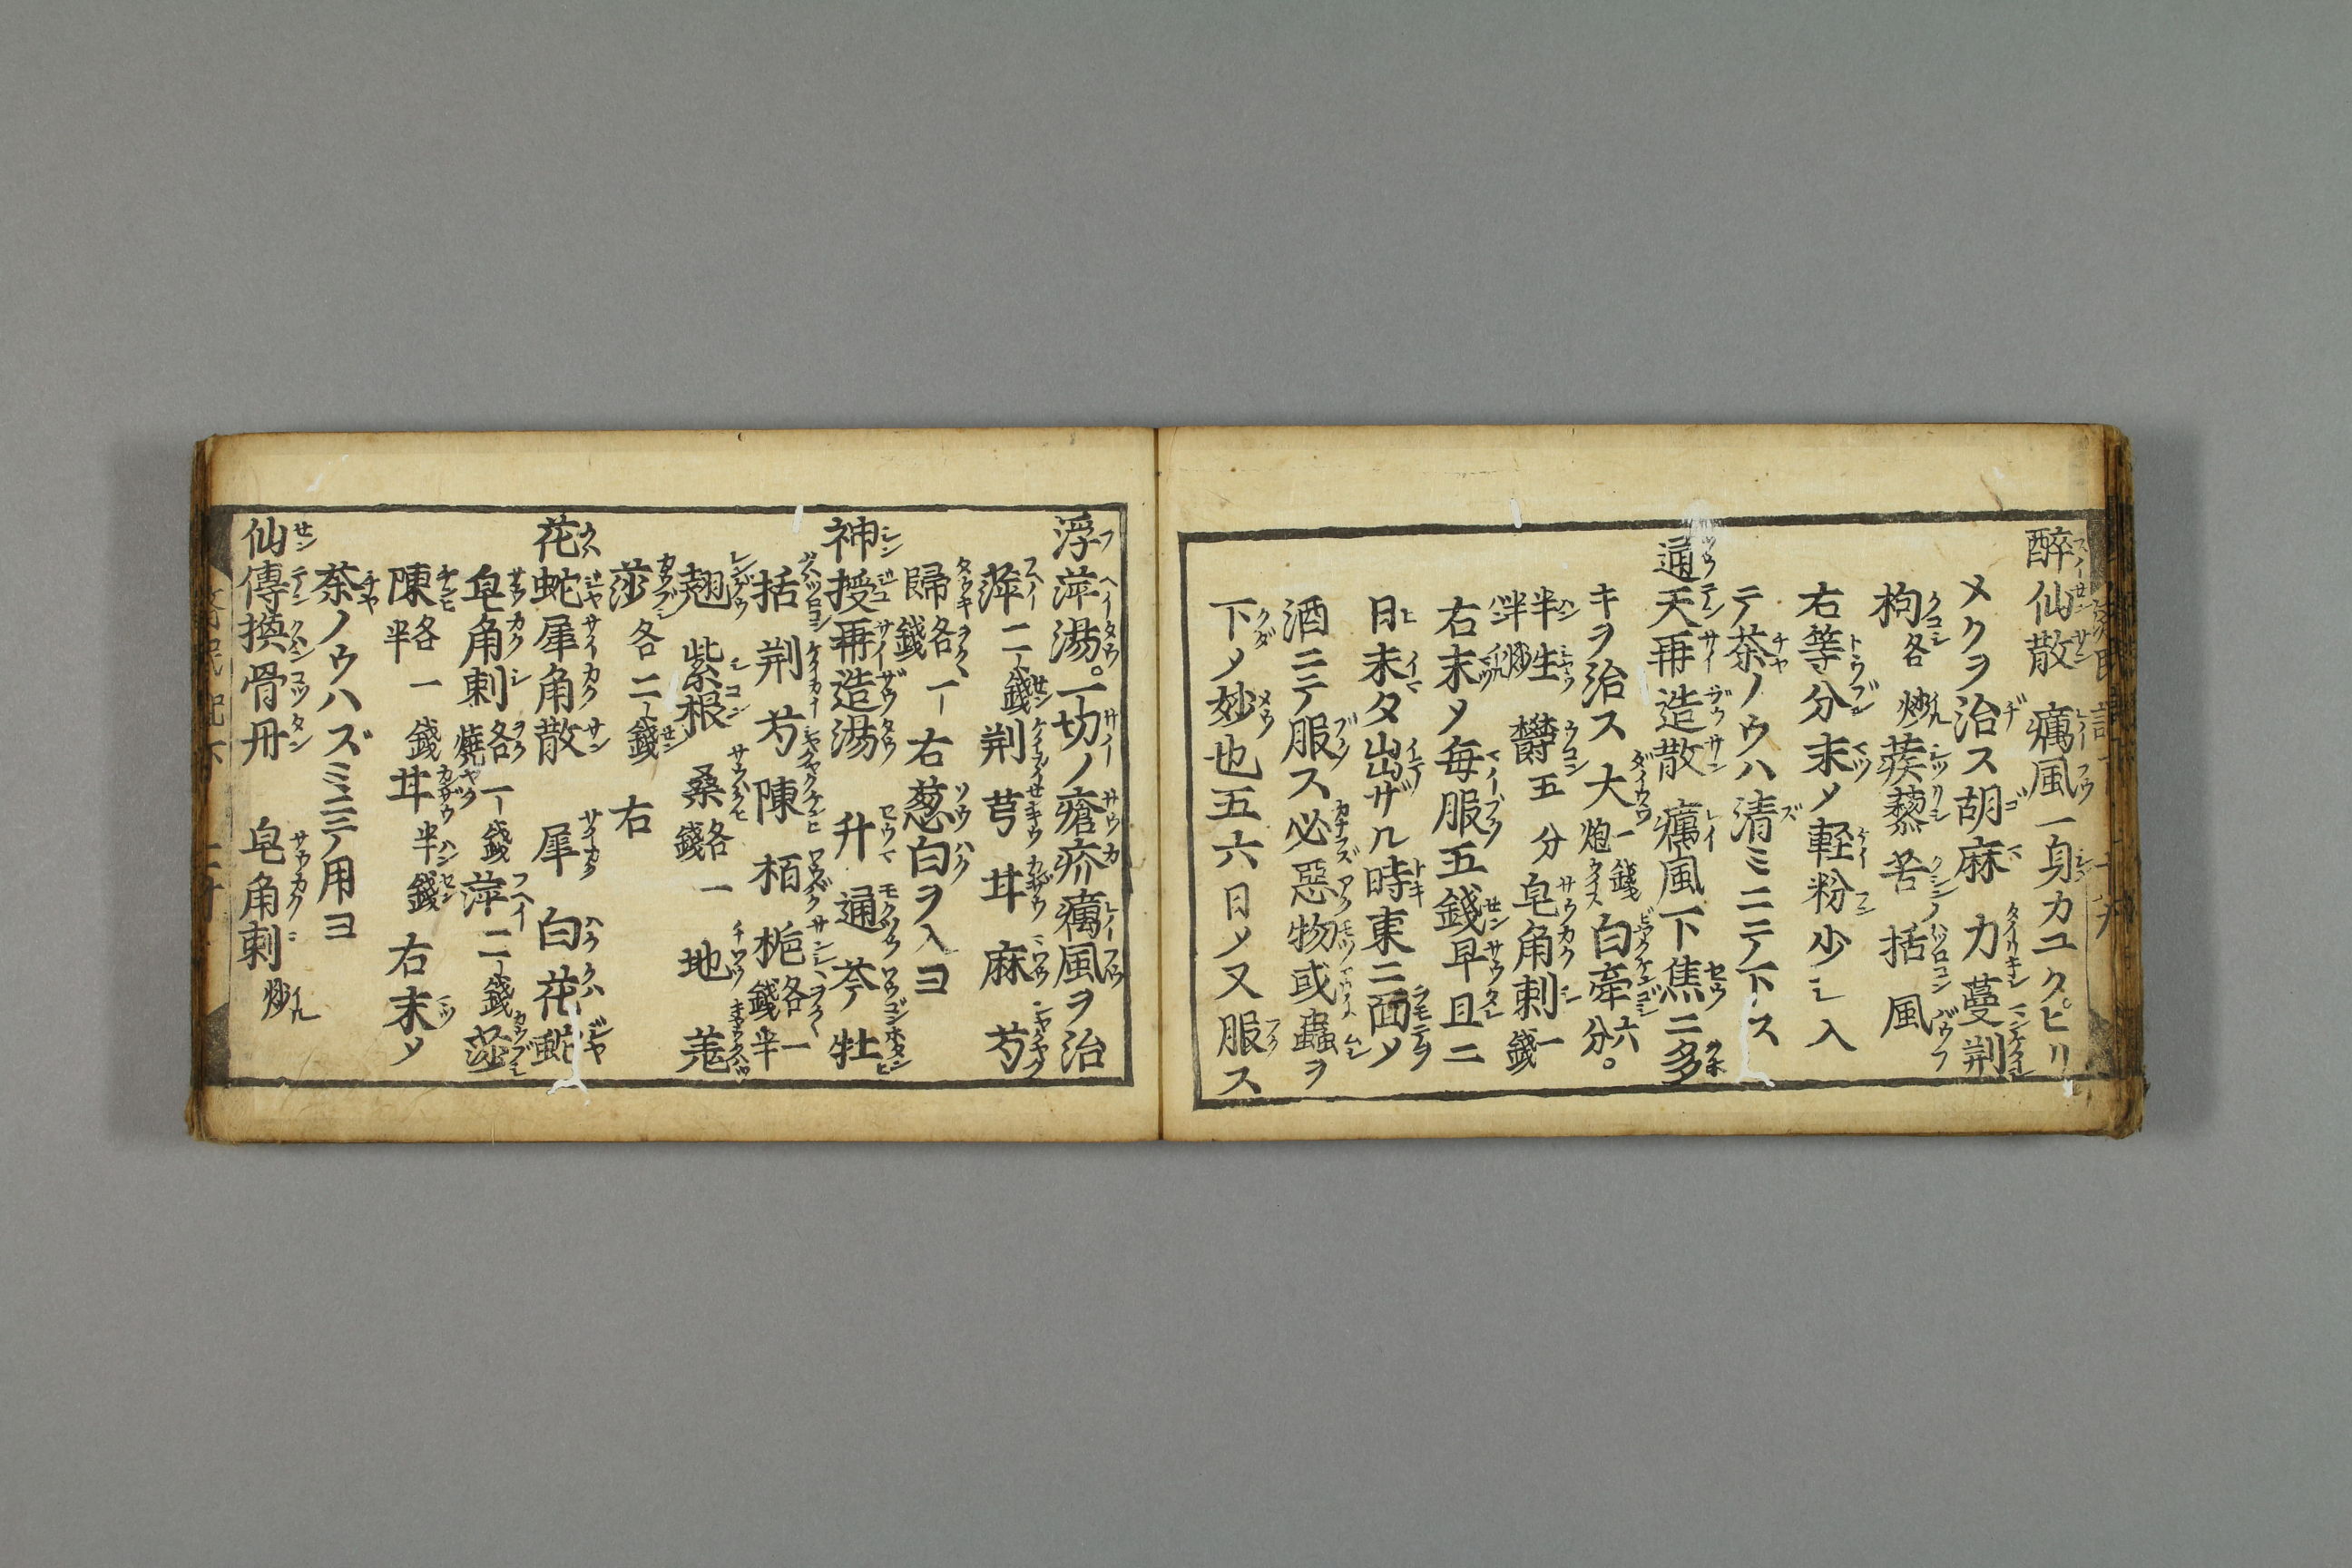 醉仙散 癘風一身カユクヒリ
メクヲ治ス胡麻 力 蔓荆
枸各炒蒺藜 苦 括 風
右等分末メ軽粉少シ入
テ茶ノウハ清ミニテ下ス
通天再造散 癘風下焦ニ多
キヲ治ス 大炮一錢 白牽六分。
半生半炒 欝五分 皂角刺一錢
右末メ毎服五錢早旦ニ
日未タ出ザル時東ニ面メ
酒ニテ服ス必惡物或蟲ヲ
下メ妙也五六日メ又服ス
浮萍湯。一切ノ瘡疥癘風ヲ治
萍二錢 荆 芎 甘 麻 芍
歸各一錢 右葱白ヲ入ヨ
神授再造湯 升 通 芩 牡
括 荆 芍 陳 栢 梔各一錢半
翹 紫根 桑各一錢 地 羌
莎各二錢 右
花蛇犀角散 犀 白花蛇
皂角刺各一錢燒 萍二錢 莎
陳各一錢半 甘半錢 右末メ
茶ノウハズミニテ用ヨ
仙傳換骨丹 皂角刺炒